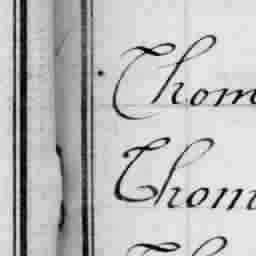 Thom
Thom
Th